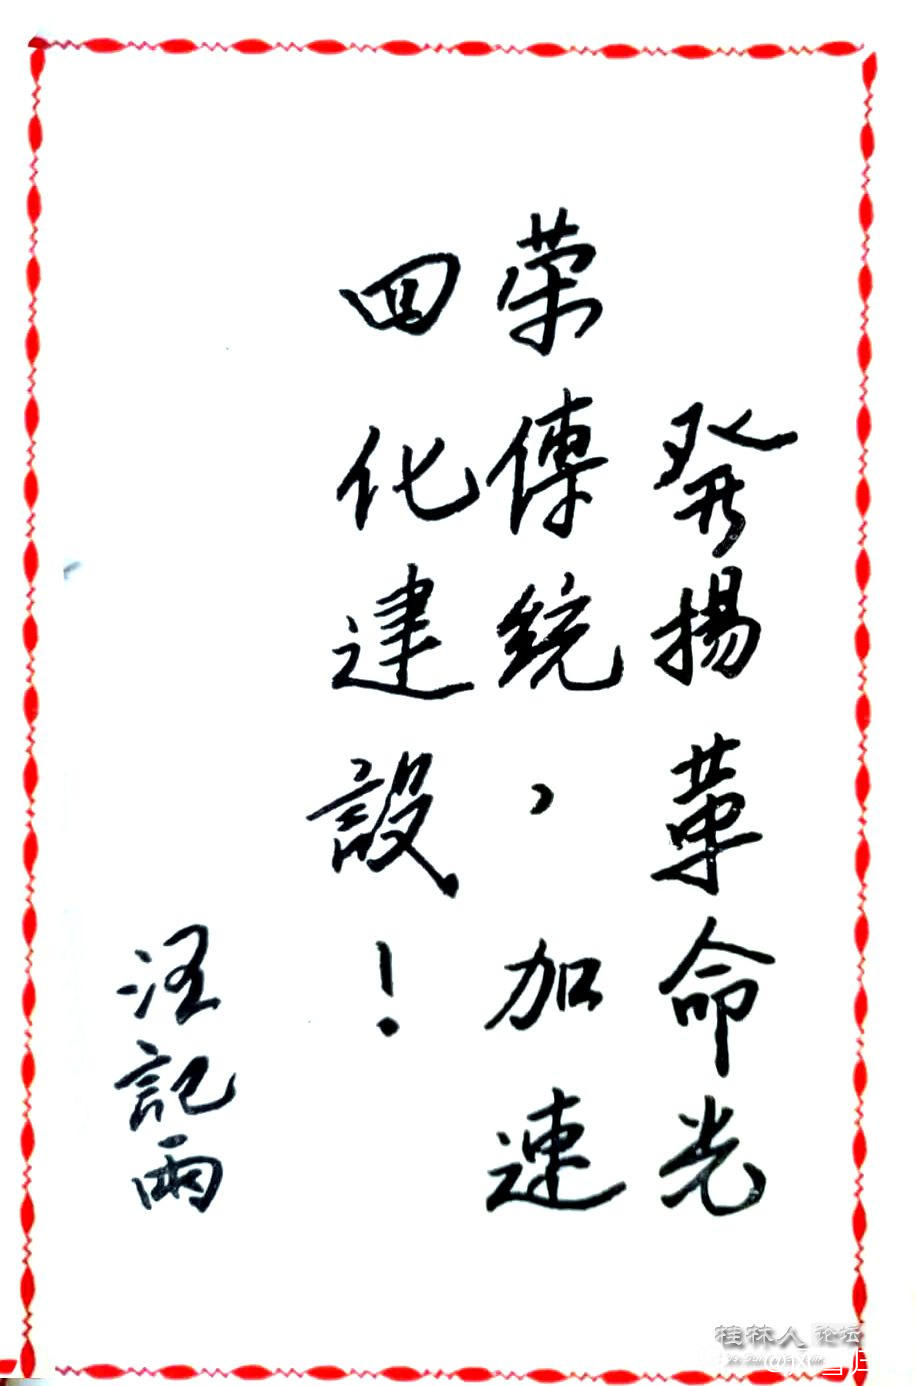 發揚革命光
荣傳統，加速
四化建設！
汪記雨
桂林人论坛